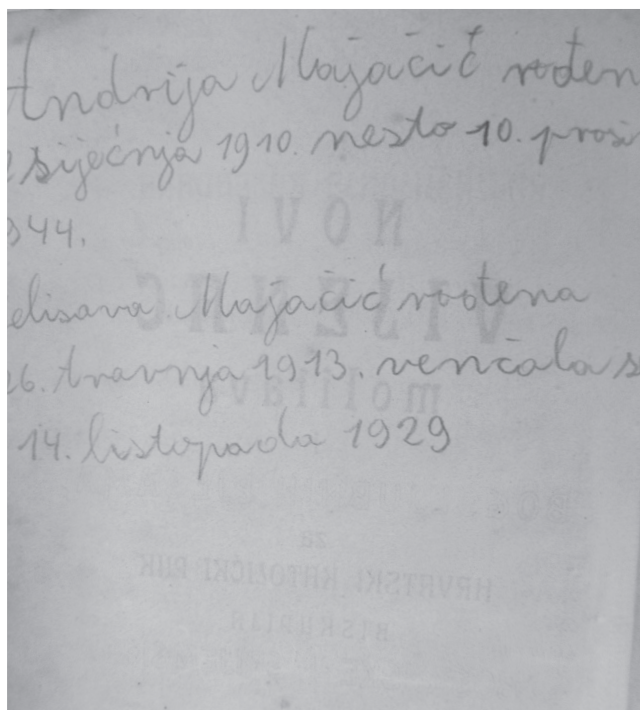 Andrija Majačić rođen
siječnja 1910. nesto 10. prosi
944.
elisava Majačić rođena
26. travnja 1913. venčala s
14. listopada 1929